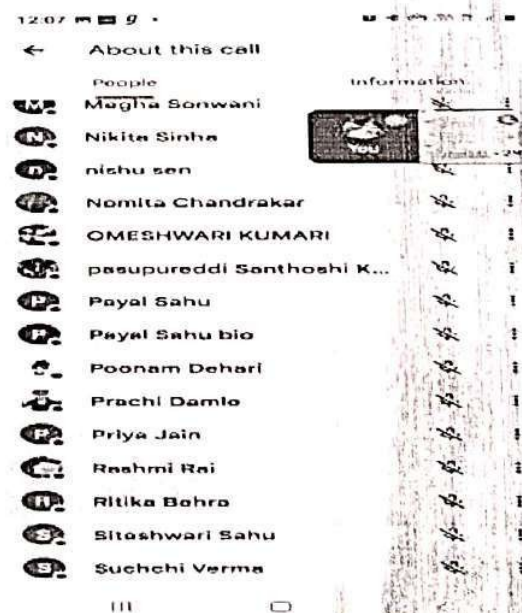 12:07
About this call
People
Information
Magha Sonwani
Nikita Sinha
You
nishu sen
Nomita Chandrakar
OMESHWARI KUMARI
pasupureddi Santhoshi K...
Payal Sahu
Payal Sahu bio
Poonam Dehari
Prachi Damle
Priya Jain
Rashmi Rai
Ritika Bohra
Siteshwari Sahu
Suchchi Verma